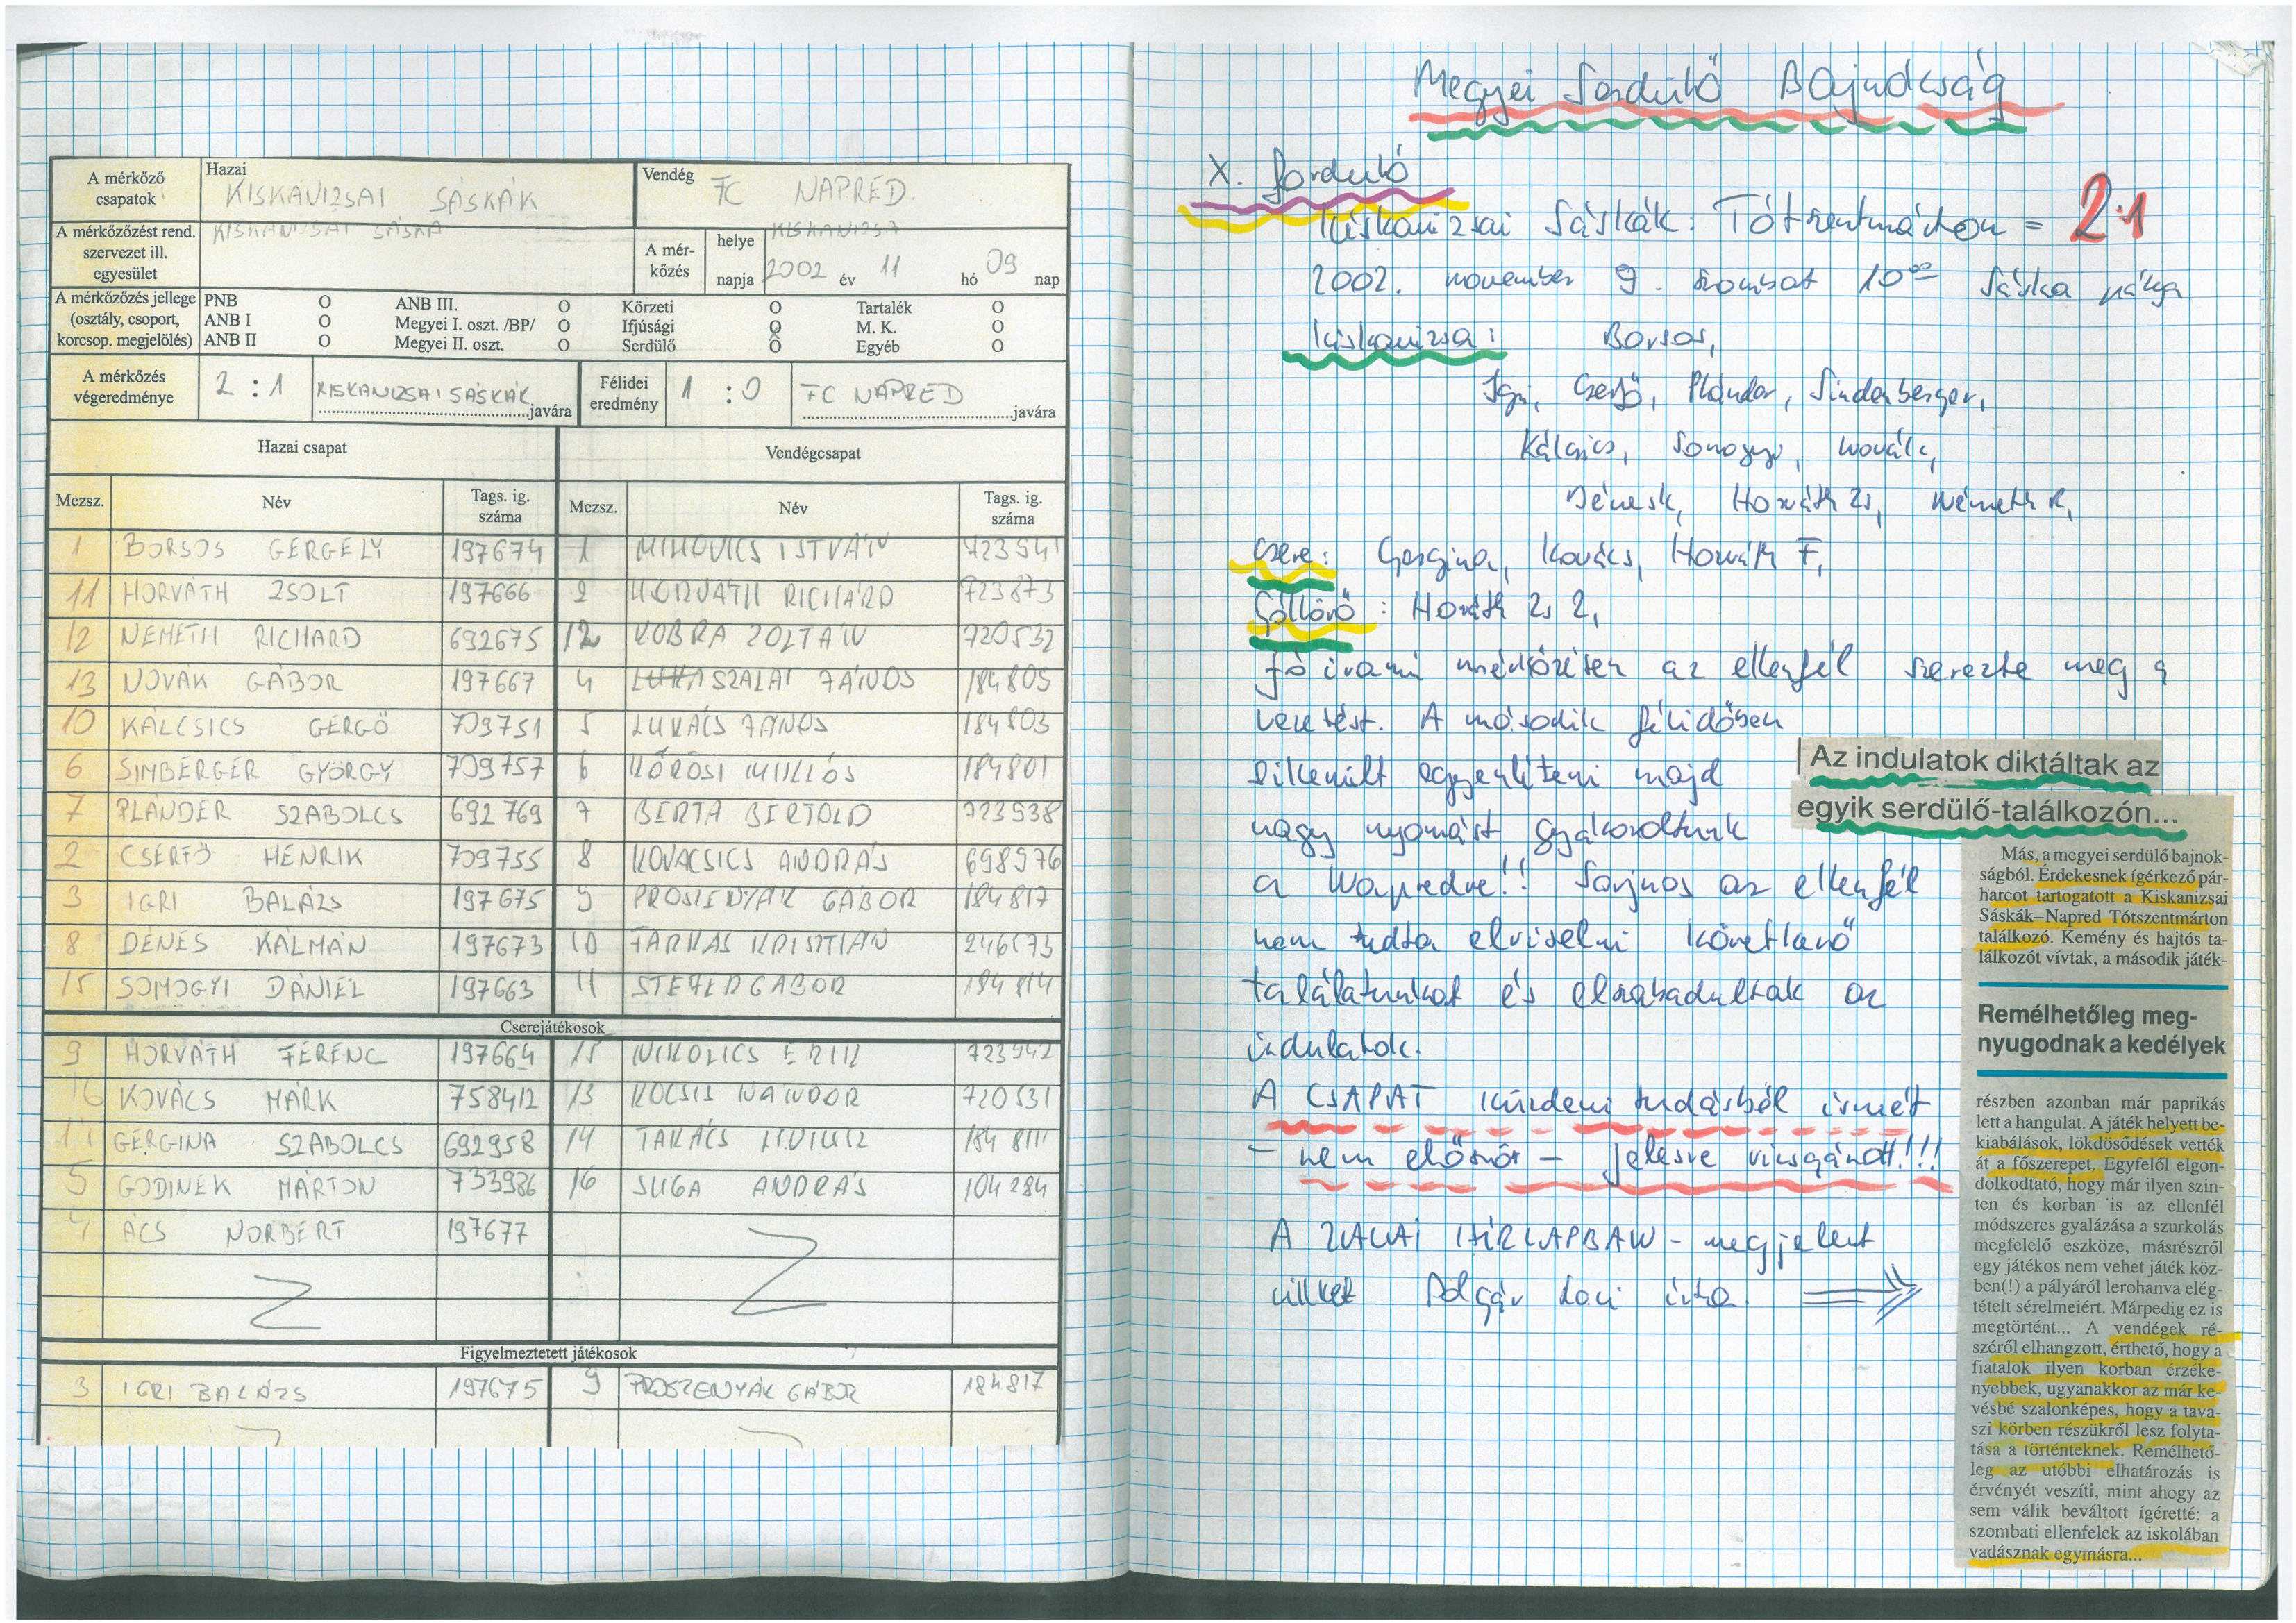 A mérkőző csapatok
Hazai
KISKANIZSAI SÁSKÁK
Vendég
FC NAPRED
A mérkőzőzést rend. szervezet ill. egyesület
KISKANIZSAI SÁSKA
A mér-
kőzés
helye
KISKANIZSA
napja
2002 év 11 hó 09 nap
A mérkőzőzés jellege
(osztály, csoport,
korcsop. megjelölés)
PNB O ANB III. O Körzeti O Tartalék O
ANB I O Megyei I. oszt. /BP/ O Ifjúsági O M. K. O
ANB II O Megyei II. oszt. O Serdülő O Egyéb O
A mérkőzés
végeredménye
2 : 1 KISKANIZSAI SÁSKÁK javára
Félidei
eredmény
1 : 0 FC NAPRED javára
Hazai csapat Vendégcsapat
Mezsz. Név Tags. ig. száma Mezsz. Név Tags. ig. száma
1 BORSOS GERGELY 197674 1 MIHOVICS ISTVÁN 723541
11 HORVÁTH ZSOLT 197666 2 HORVÁTH RICHÁRD 723873
12 NÉMETH RICHARD 692675 12 KOBRA ZOLTÁN 720532
13 NOVÁK GÁBOR 197667 4 SZALAI JÁNOS 184805
10 KÁLCSICS GERGŐ 709751 5 LUKÁCS JÁNOS 184803
6 SIMBERGER GYÖRGY 709757 6 KŐRÖSI MIKLÓS 184801
7 PLANDER SZABOLCS 692769 7 BERTA BERTOLD 723938
2 CSERFŐ HENRIK 709755 8 KOVACSICS ANDRÁS 698976
3 IGRI BALÁZS 197675 9 PROSZENYÁK GÁBOR 184817
8 DÉNES KÁLMÁN 197673 10 FARKAS KRISZTIÁN
15 SOMOGYI DÁNIEL 197663 11 STEFER GÁBOR 184814
Cserejátékosok
9 HORVÁTH FERENC 197664 15 NIKOLICS ERIK 723942
16 KOVÁCS MÁRK 758412 13 KOCSIS NÁNDOR 720531
GERGINA SZABOLCS 692958 14 TAKÁCS
5 GODINEK MÁRTON 733986 16 SUGA ANDRÁS 104284
4 ÁCS NORBERT 197677
Figyelmeztetett játékosok
3 IGRI BALÁZS 197675 9 PROSZENYÁK GÁBOR 184817
Megyei Serdülő Bajnokság
X. forduló
Kiskanizsai Sáskák : Tótszentmárton = 2:1
2002. november 9. szombat 10 00 Sáska pálya
Kiskanizsa: Borsos,
Igri, Cserfő, Plánder, Sindenberger,
Kálcsics, Somogyi, Novák,
Dénesk, Horváth Zs, Németh R,
Csere: Gergina, Kovács, Horváth F,
Góllövő: Horváth Zs 2,
Jó iramú mérkőzésen az ellenfél szerezte meg a
vezetést. A második félidőben
sikerült egyenlíteni majd
nagy nyomást gyakoroltunk
a Napredre!! Sajnos az ellenfél
nem tudta elviselni következő
találatunkat és elszabadultak az
indulatok.
A CSAPAT küzdeni tudásból ismét
- nem először - jelesre vizsgázott!!!
A ZALAI HÍRLAPBAN - megjelent
cikket Polgár Laci írta.
Az indulatok diktáltak az
egyik serdülő-találkozón...
Más, a megyei serdülő bajnok-
ságból. Érdekesnek ígérkező pár-
harcot tartogatott a Kiskanizsai
Sáskák–Napred Tótszentmárton
találkozó. Kemény és hajtós ta-
lálkozót vívtak, a második játék-
Remélhetőleg meg-
nyugodnak a kedélyek
részben azonban már paprikás
lett a hangulat. A játék helyett be-
kiabálások, lökdösődések vették
át a főszerepet. Egyfelől elgon-
dolkodtató, hogy már ilyen szin-
ten és korban is az ellenfél
módszeres gyalázása a szurkolás
megfelelő eszköze, másrészről
egy játékos nem vehet játék köz-
ben(!) a pályáról lerohanva elég-
tételt sérelmeiért. Márpedig ez is
megtörtént... A vendégek ré-
széről elhangzott, érthető, hogy a
fiatalok ilyen korban érzéke-
nyebbek, ugyanakkor az már ke-
vésbé szalonképes, hogy a tava-
szi körben részükről lesz folyta-
tása a történteknek. Remélhető-
leg az utóbbi elhatározás is
érvényét veszíti, mint ahogy az
sem válik beváltott ígéretté: a
szombati ellenfelek az iskolában
vadásznak egymásra...